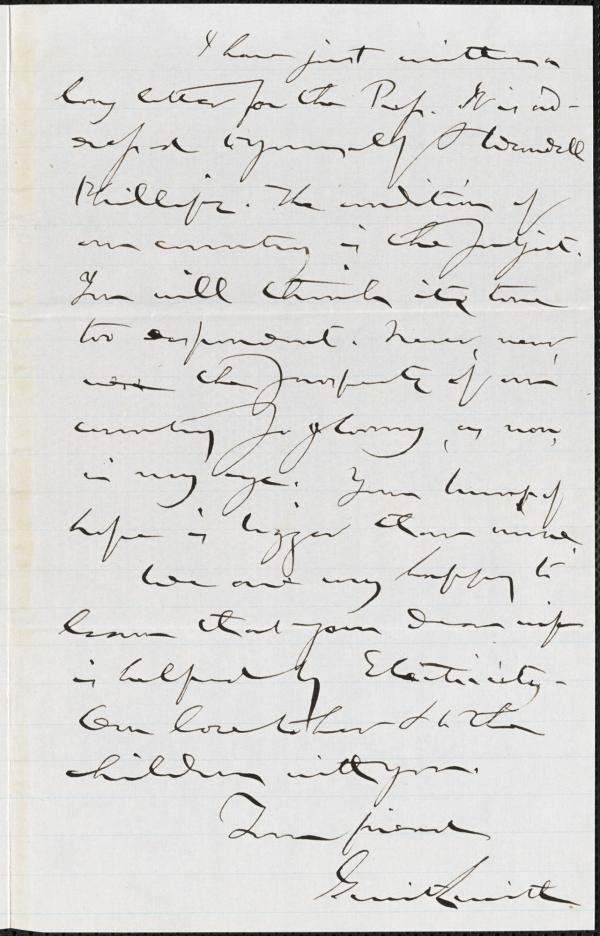 I have just written a
long letter for the Press. It is ad-
dressed to yourself & Wendell
Phillips. The condition of
our country is the subject.
You will think its tone
too despondent. Never, never,
was the prospects of our
country so gloomy, as now,
in my eye. Your bump of
hope is bigger than mine.
We are very happy to
learn that your dear wife
is helped by Electricity.
Our love to her & to the
children with you.
Your friend
Gerrit Smith